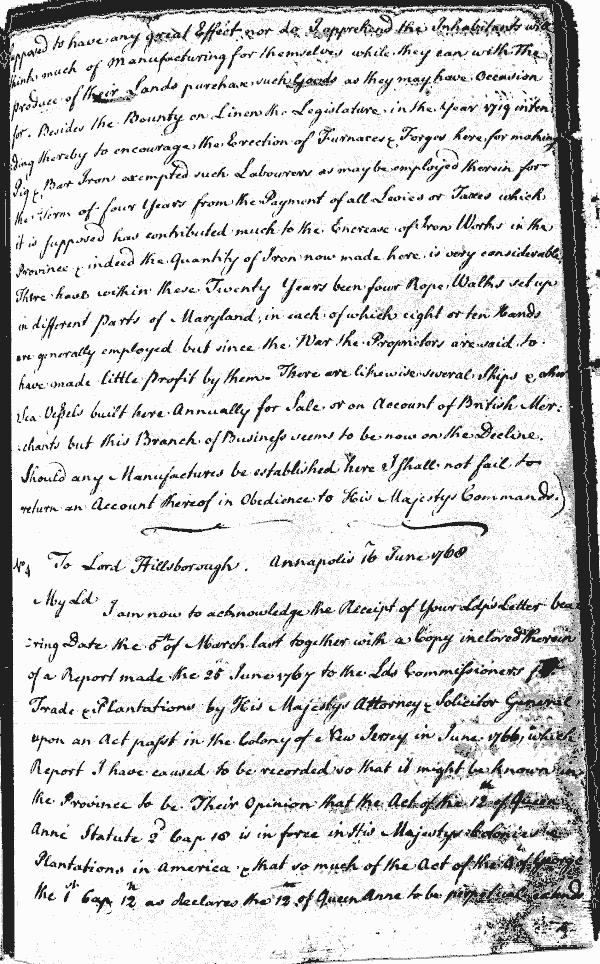 supposed to have any great Effect nor do I apprehend the Inhabitants will
think much of Manufacturing for themselves while they can with the
produce of their Lands purchase such Goods as they may have Occasion
for. Besides the Bounty on Linen the Legislature in the Year 1719 inten
ding thereby to encourage the Erection of Furnaces & Forges here for making
Pig & Bar Iron exempted such Labourers as may be employed therein for
the Term of four Years from the Payment of all Levies or Taxes which
it is supposed has contributed much to the Encrease of Iron Works in the
Province & indeed the Quantity of Iron now made here is very considerable
There have within these Twenty Years been four Rope Walks set up
in different parts of Maryland, in each of which eight or ten Hands
are generally employed but since the War the Proprietors are said to
have made little Profit by them. There are likewise several Ships & other
Sea Vessels built here Annually for Sale or on Account of British Mer:
chants but this Branch of Business seems to be now on the Decline.
Should any Manufactures be established here I shall not fail to
return an Account thereof in Obedience to His Majestys Commands.)
To Lord Hillsborough. Annapolis 16 June 1768
My Ld
I am now to acknowledge the Receipt of Your Ldps Letter bea
:ring Date the 5th of March last together with a Copy inclosed therein
of a Report made the 25 June 1767 to the Lds Commissioners for
Trade & Plantations by His Majestys Attorney & Solicitor General
upon an Act passt in the Colony of New Jersey in June 1766, which
Report I have caused to be recorded so that it might be known in
the Province to be Their Opinion that the Act of the 12th of Queen
Anne Statute 2d Cap 18 is in force in His Majestys Colonies &
Plantations in America & that so much of the Act of the 4 of George
the 1st Cap 12th as declares the 12th of Queen Anne to be perpetual extends